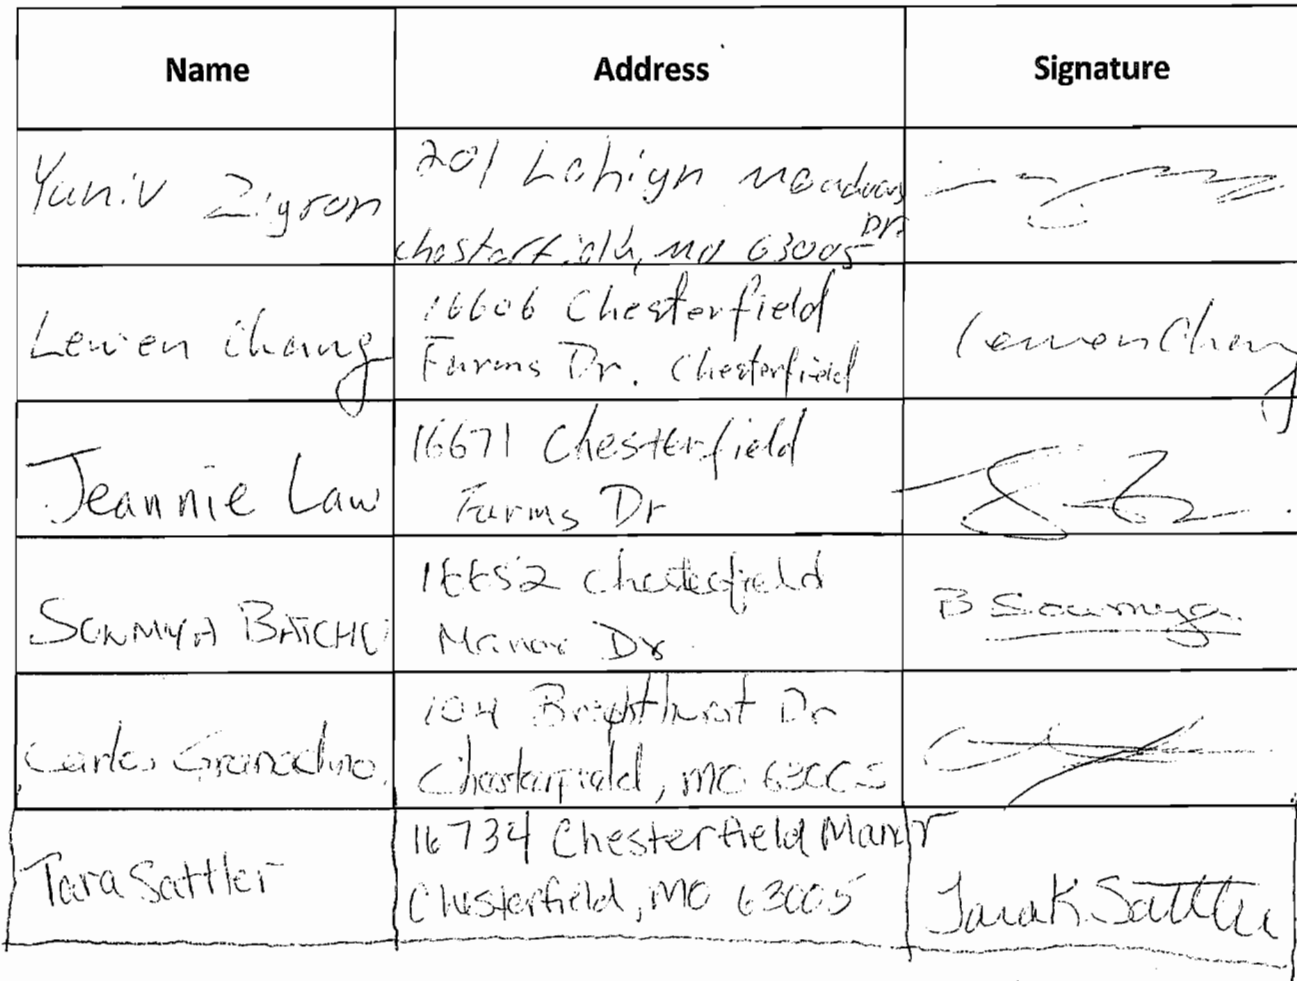 Name Address Signature
Yaniv Zigron
201 Lohign Meadows
Dr.
Chesterfield, MO 63005
Lewen Chang
16606 Chesterfield
Farms Dr. Chesterfield
Lewen Chang
Jeannie Law
16671 Chesterfield
Farms Dr
Soumya
16652 Chesterfield
Manor Dr.
B Soumya
Carlos Granadino
104 Brighthurst Dr
Chesterfield, MO 63005
Tara Sattler
16734 Chesterfield Manor
Chesterfield, MO 63005
Tara K Sattler